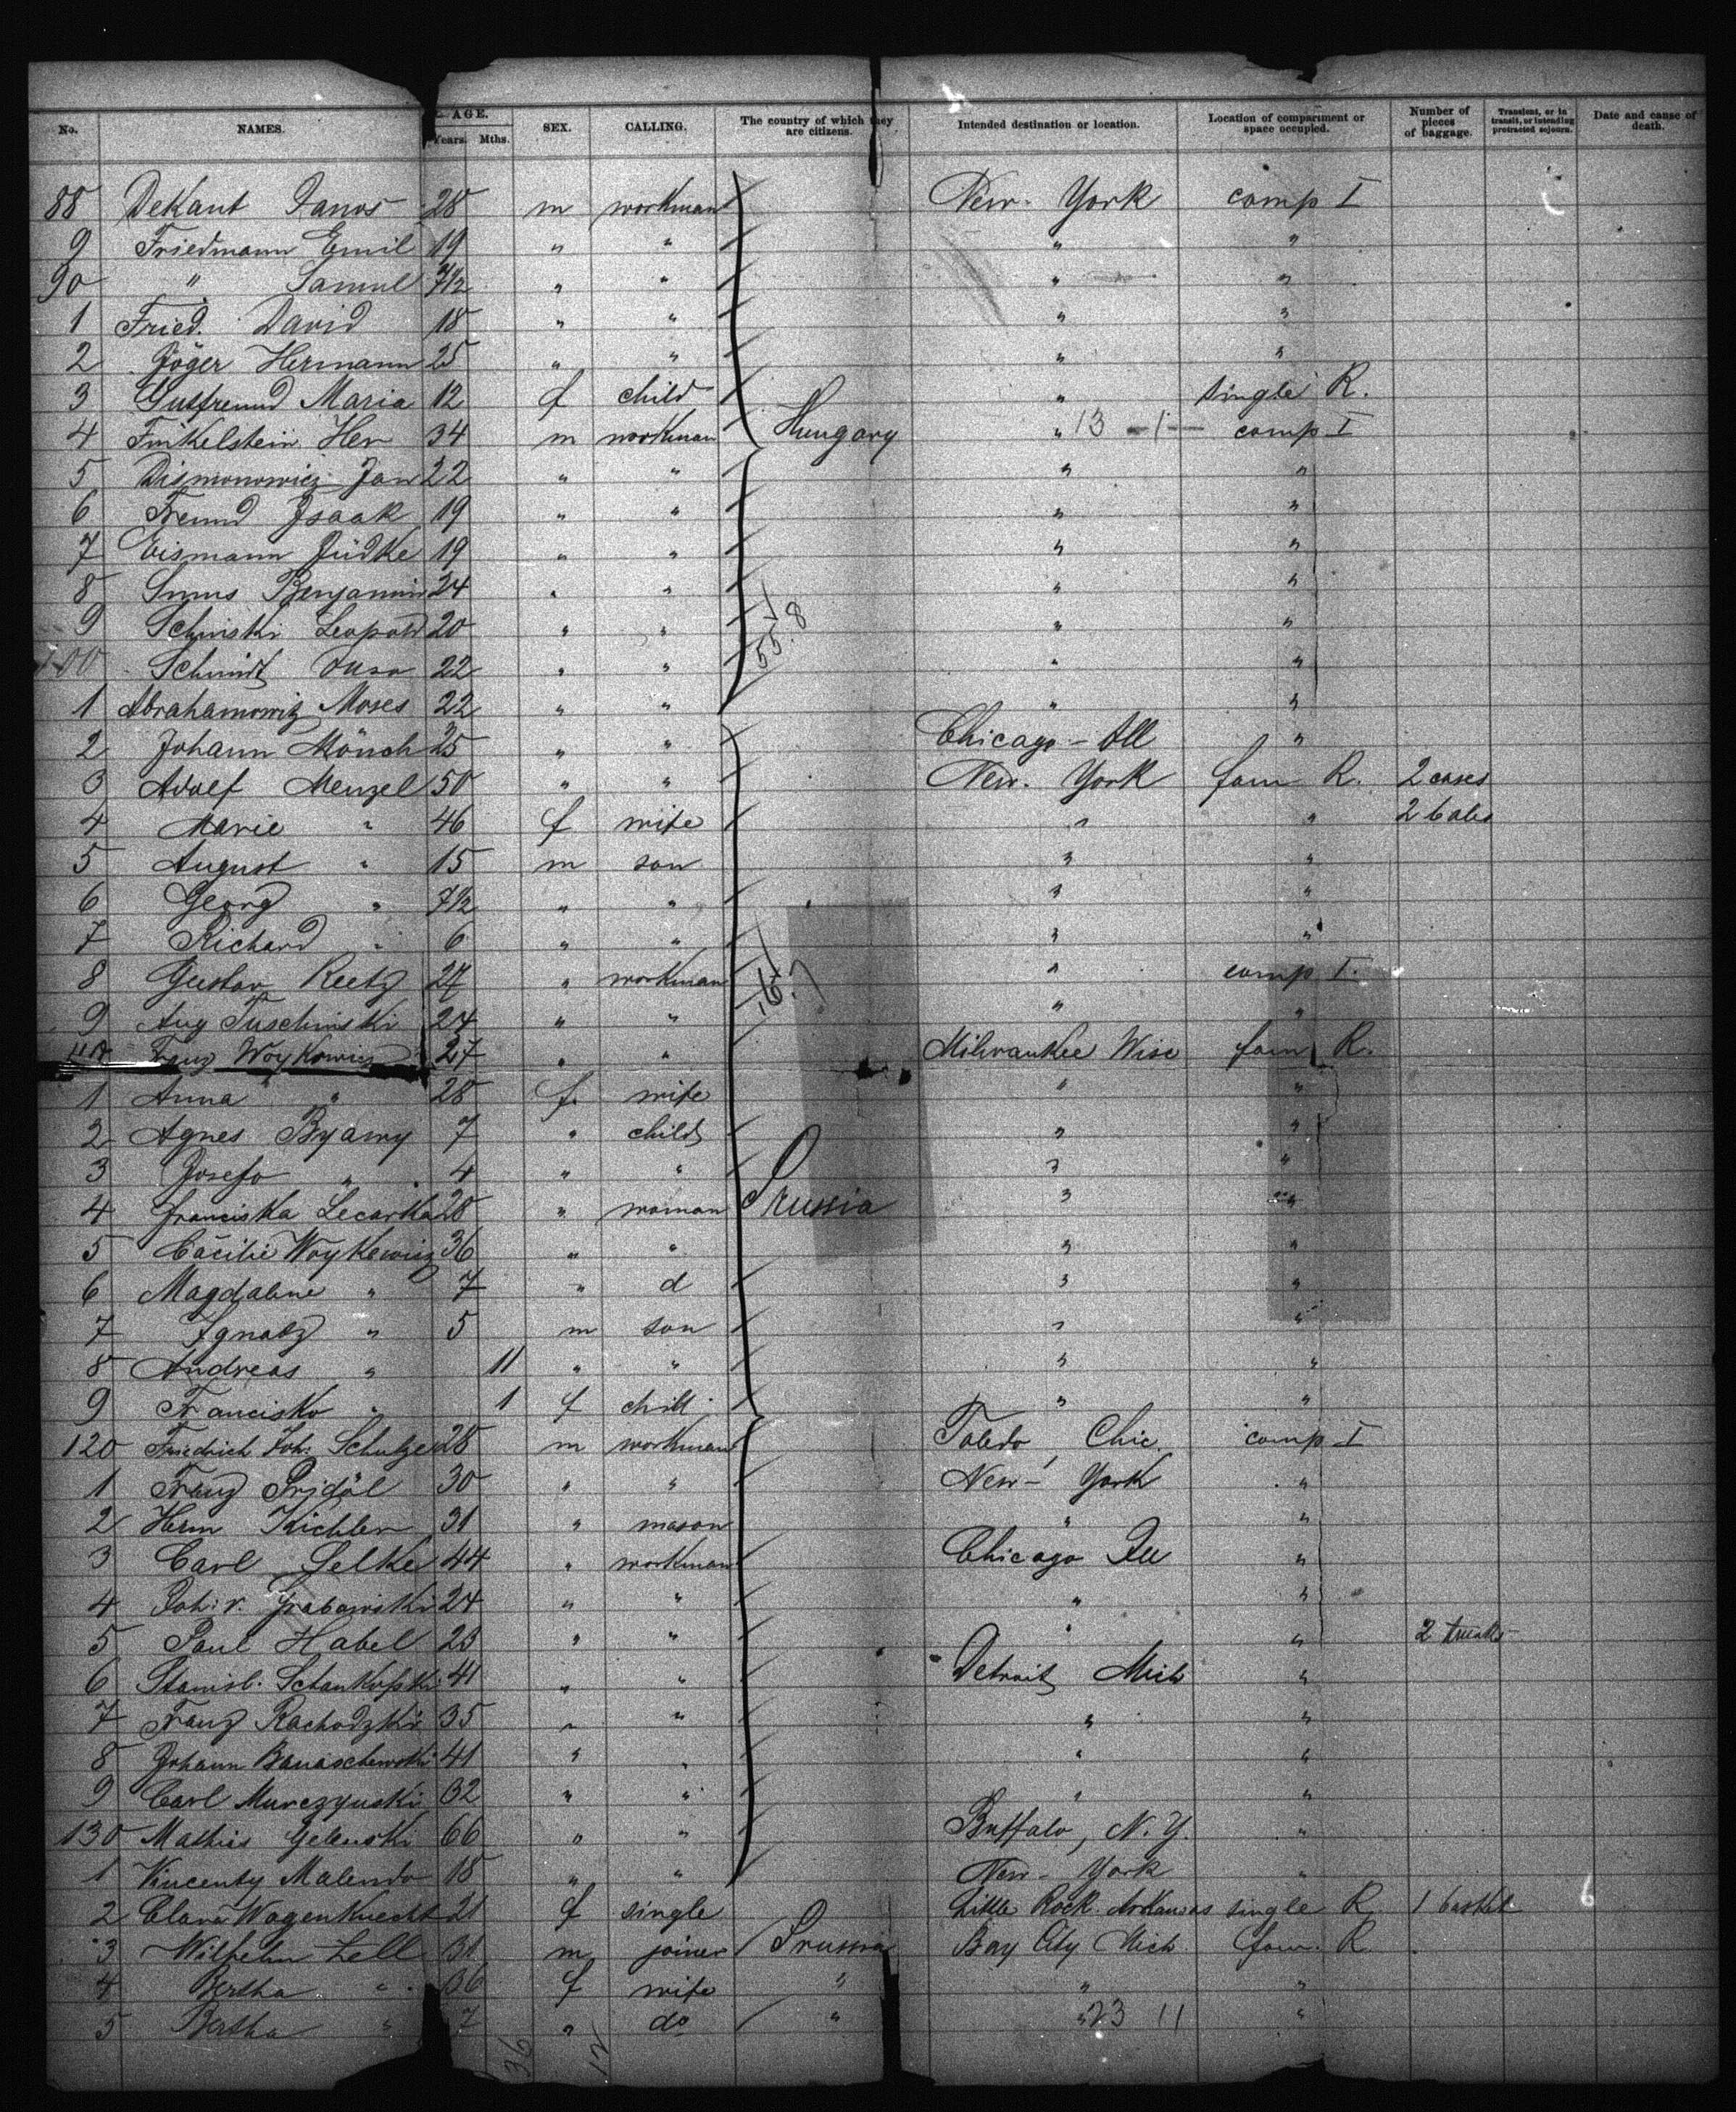 No. NAMES. AGE. Years. Mths. SEX. CALLING. The country of which they are citizens. Intended destination or location. Location of compartment or space occupied. Number of pieces of baggage. Transient, or in transit, or intending protracted sojourn. Date and cause of death.
88 DeKant Janos 28 m workman New-York comp I
9 Friedmann Emil 19 " " " "
90 " Samuel 7½ " " " "
1 Fried. David 18 " " " "
2 Jöger Hermann 25 " " " "
3 Gutfreund Maria 12 f child " single R.
4 Finkelstein Her 34 m workman Hungary " 13 - 1 - comp I
5 Dismonowicz Jan 22 " " " "
6 Freund Isaak 19 " " " "
7 Eismann Jüdke 19 " " " "
8 Benjamin 24 " " " "
9 Schinski Leopold 20 " " 55.8 " "
100 Schmidt 22 " " " "
1 Abrahamowitz Moses 22 " " " "
2 Johann Mönch 25 " " Chicago - Ill "
3 Adolf Menzel 50 " " New-York fam R. 2 cases
4 Marie " 46 f wife " " 2 bales
5 August " 15 m son " "
6 Georg " 7½ " " " "
7 Richard " 6 " " " "
8 Gustav Reetz 27 " workman " comp I.
9 Aug Tuschinski 24 " " " "
110 Franz Woykowicz 27 " " Milwaukee Wisc fam R.
1 Anna " 28 f wife " "
2 Agnes Byamy 7 " child " "
3 Josefa " 4 " " " "
4 Franciska Lecarka 28 " woman Prussia " "
5 Cäcilie Woykewicz 36 " " " "
6 Magdalene " 7 " d " "
7 Ignatz " 5 m son " "
8 Andreas " 11 " " " "
9 Francisko " 1 f child " "
120 Friedrich Joh. Schulze 28 m workman Toledo, Chic. comp I
1 Franz Pridöl 30 " " New-York "
2 Herm Kichler 31 " mason " "
3 Carl Selke 44 " workman Chicago Ill "
4 Joh. v. Grabowski 24 " " " "
5 Paul Habel 23 " " " " 2 trunks
6 Stanisl. Schankofski 41 " " Detroit Mich "
7 Franz Rachodzki 35 " " " "
8 Johann Banaschewski 41 " " " "
9 Carl Murczynski 32 " " " "
130 Mathis Gelenski 66 " " Buffalo, N.Y. "
1 Vincenty Malendo 18 " " New-York "
2 Clara Wagenknecht 21 f single Little Rock Arkansas single R. 1 basket
3 Wilhelm Zell 31 m joiner Prussia Bay City Mich. fam. R.
4 Bertha " 36 f wife " " "
5 Bertha " 7 " do " " 23 11 "
36 12